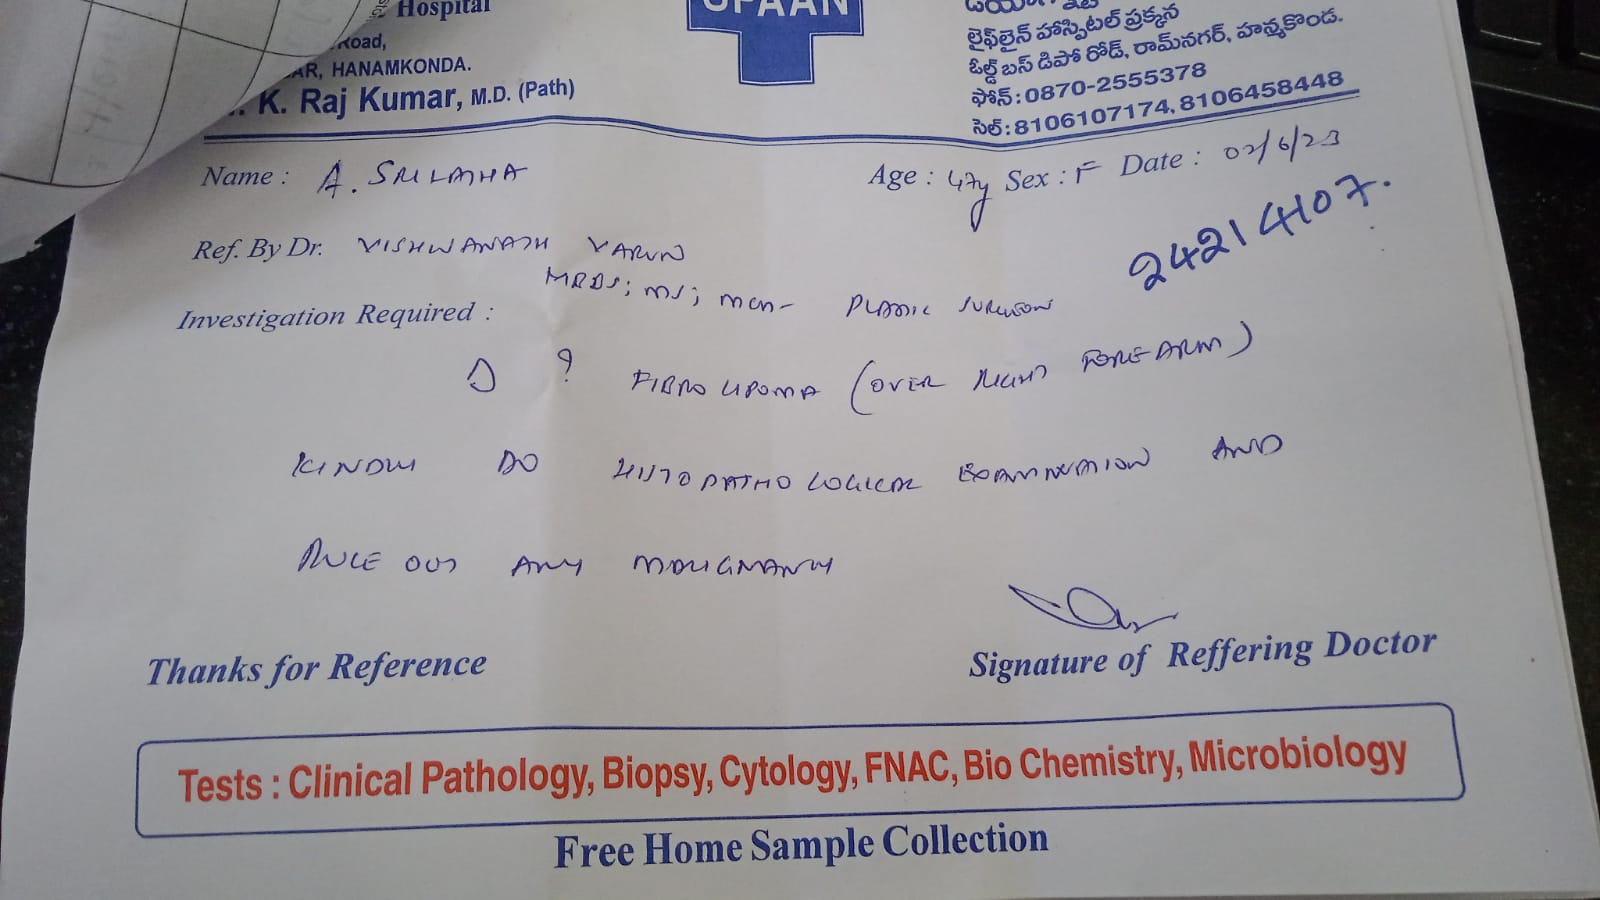 Hospital
Road,
AR, HANAMKONDA.
K. Raj Kumar, M.D. (Path)
లైఫ్‌లైన్ హాస్పిటల్ ప్రక్కన
ఓల్డ్ బస్ డిపో రోడ్, రామ్‌నగర్, హన్మకొండ.
ఫోన్ : 0870-2555378
సెల్ : 8106107174, 8106458448
Name : A. SRILATHA
Age : 47y Sex : F Date : 02/6/23
24214107.
Ref. By Dr. VISHWANATH VARUN
MBBS; MS; MCH- PLASTIC SURGEON
Investigation Required :
? FIBRO LIPOMA (OVER RIGHT FOREARM)
KINDLY DO HISTOPATHOLOGICAL EXAMINATION AND
RULE OUT ANY MALIGNANCY
Thanks for Reference
Signature of Reffering Doctor
Tests : Clinical Pathology, Biopsy, Cytology, FNAC, Bio Chemistry, Microbiology
Free Home Sample Collection